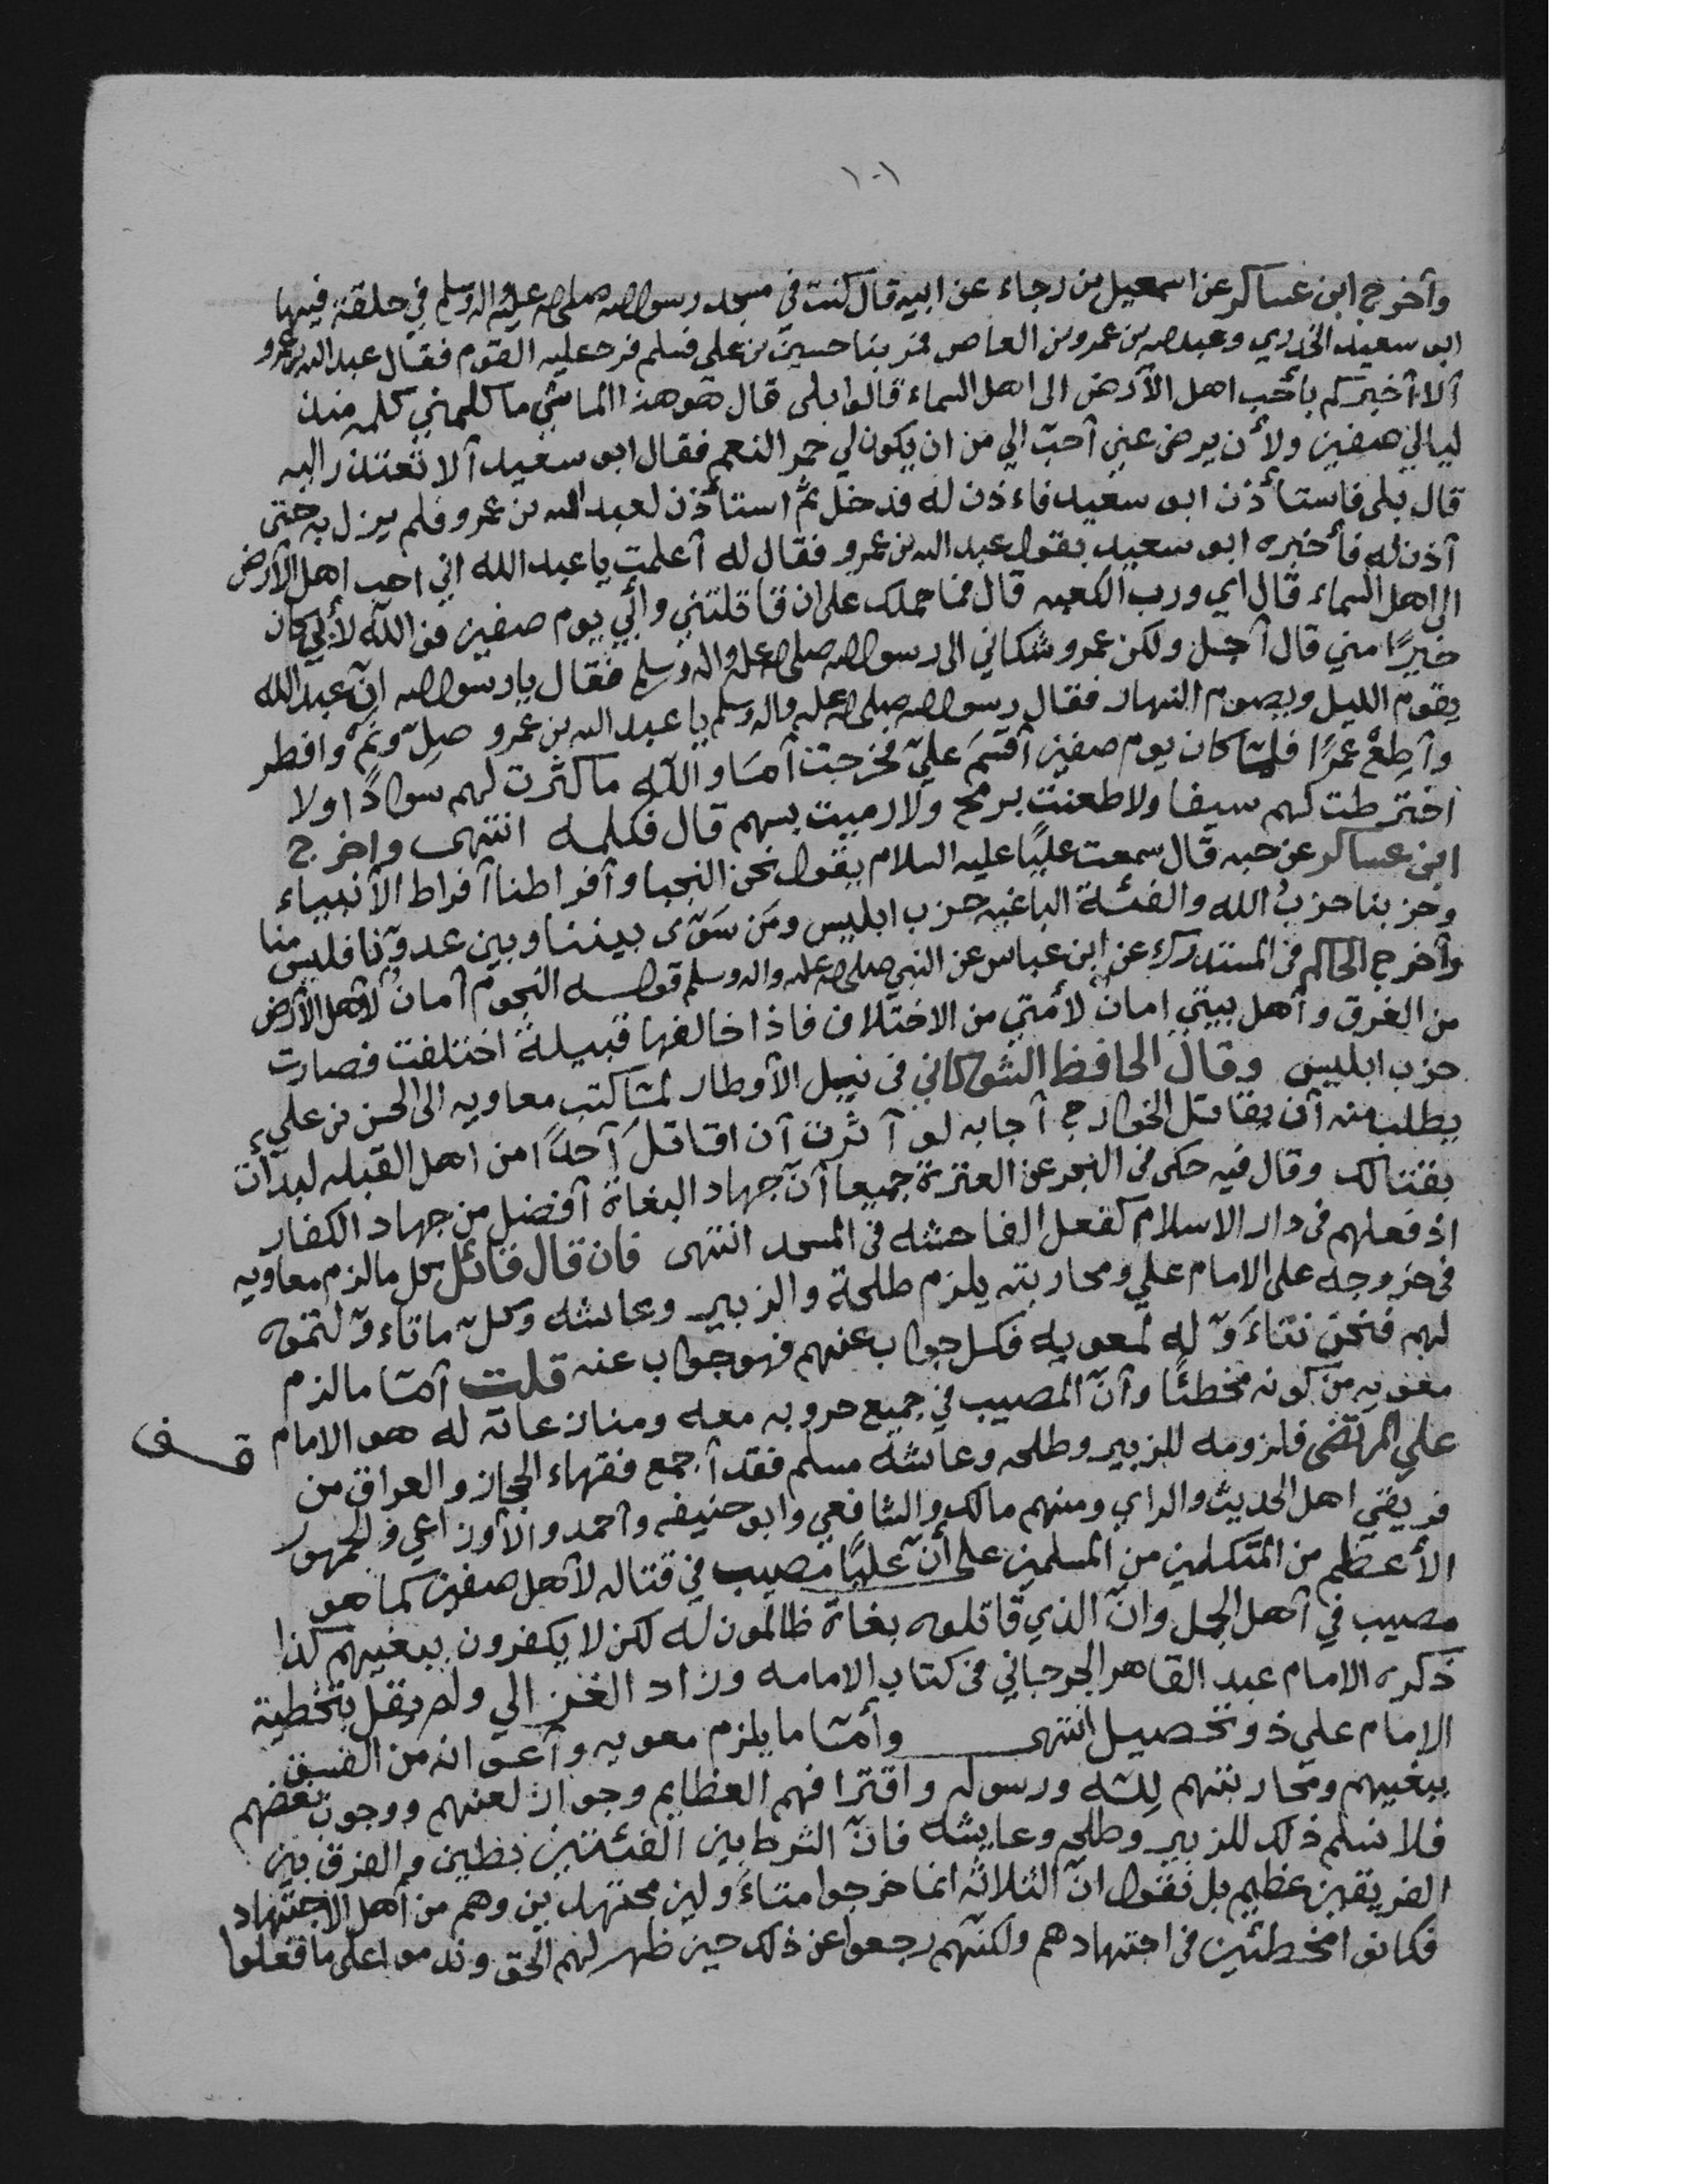 ١٠١
وأخرج ابن عساكر عن اسمعيل بن رجاء عن ابيه قال كنت في مسجد رسول الله صلى الله عليه واله وسلم في حلقة فيها
ابو سعيد الخدري وعبد الله بن عمرو بن العاص فمر بنا حسين بن علي فسلم فرد عليه القوم فقال عبد الله بن عمرو
ألا أخبركم بأحب اهل الأرض الى اهل السماء قالوا بلى قال هو هذا الماشي ما كلمني كلمه منذ
ليالي صفين ولأن يرضى عني أحب الي من ان يكون لي حمر النعم فقال ابو سعيد ألا تعتذر اليه
قال بلى فاستأذن ابو سعيد فاءذن له فدخل ثم استأذن لعبد الله بن عمرو فلم يزل به حتى
أذن له فأخبره ابو سعيد بقول عبد الله بن عمرو فقال له أعلمت يا عبد الله اني احب اهل الأرض
الى اهل السماء قال اي ورب الكعبه قال فما حملك على ان قاتلتني وأبي يوم صفين فوالله لأبي كان
خيرًا مني قال أجل ولكن عمرو شكاني الى رسول الله صلى الله عليه واله وسلم فقال يا رسول الله انّ عبد الله
يقوم الليل ويصوم النهار فقال رسول الله صلى الله عليه واله وسلم يا عبد الله بن عمرو صلّ ونم وافطر
وأطِعْ عَمرًا فلمّا كان يوم صفين أقسَمَ عليّ فخرجت أمَا والله ما كثرت لهم سوادًا ولا
اخترطت لهم سيفا ولا طعنت برمح ولا رميت بسهم قال فكلمه انتهى واخرج
ابن عساكر عن حبه قال سمعت عليًا عليه السلام يقول نحن النجبا وأفراطنا أفراط الأنبياء
وحزبنا حزبُ الله والفئة الباغيه حزب ابليس ومَن سَوّى بيننا وبين عدوّنا فليس منا
وأخرج الحاكم في المستدرك عن ابن عباس عن النبي صلى الله عليه واله وسلم قوله النجوم أمانٌ لأهل الأرض
من الغرق وأهل بيتي امانٌ لأمتي من الاختلاف فاذا خالفها قبيلة اختلفت فصارت
حزب ابليس وقال الحافظ الشوكاني في نيل الأوطار لمّا كتب معاويه الى الحسن بن علي
يطلب منه أن يقاتل الخوارج أجابه لو أثرت أن اقاتلَ أحدًا من اهل القبله لبدأت
بقتالك وقال فيه حكى في البحر عن العترة جميعا أنّ جهاد البغاة أفضل من جهاد الكفار
اذ فعلهم في دار الاسلام كفعل الفاحشه في المسجد انتهى فان قال قائل كل ما لزم معاويه
في خروجه على الامام علي ومحاربته يلزم طلحة والزبير وعائشه وكل ما تاءوّلتموه
لهم فنحن نتاءَوّله لمعويه فكل جواب عنهم فهو جواب عنه قلت أمّا ما لزم
معويه من كونه مخطئًا وأنّ المصيب في جميع حروبه معه ومنازعاته له هو الامام
قف
علي المرتضى فلزومه للزبير وطلحه وعائشه مسلم فقد أجمع فقهاء الحجاز والعراق من
فريقي اهل الحديث والراي ومنهم مالك والشافعي وابو حنيفه وأحمد والأوزاعي والجمهور
الأعظم من المتكلمين من المسلمين على أنّ عليًا مصيب في قتاله لأهل صفين كما هو
مصيب في أهل الجمل وانّ الذي قاتلوه بغاة ظالمون له لكن لا يكفرون ببغيهم كذا
ذكره الامام عبد القاهر الجرجاني في كتاب الامامه وزاد الغزالي ولم يقل بتخطية
الامام علي ذو تحصيل انتهى وأمّا ما يلزم معويه وأعوانه من الفسق
ببغيهم ومحاربتهم لِلّه ورسوله واقترافهم العظايم وجواز لعنهم ووجوب بغضهم
فلا نسلم ذلك للزبير وطلحه وعايشه فانّ الشرط بين الفئتين بطين والفرق بين
الفريقين عظيم بل نقول انّ الثلاثه انما خرجوا متاءَولين مجتهدين وهم من أهل الاجتهاد
فكانوا مخطئين في اجتهادهم ولكنّهم رجعوا عن ذلك حين ظهر لهم الحق وندموا على ما فعلوا